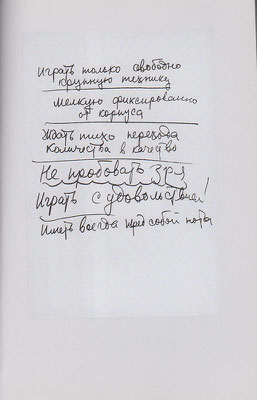 Играть только свободно
крупную технику
Мелкую фиксированно
от корпуса
Ждать тихо перехода
количества в качество
Не пробовать зря
Играть с удовольствием!
Иметь всегда пред собой ноты